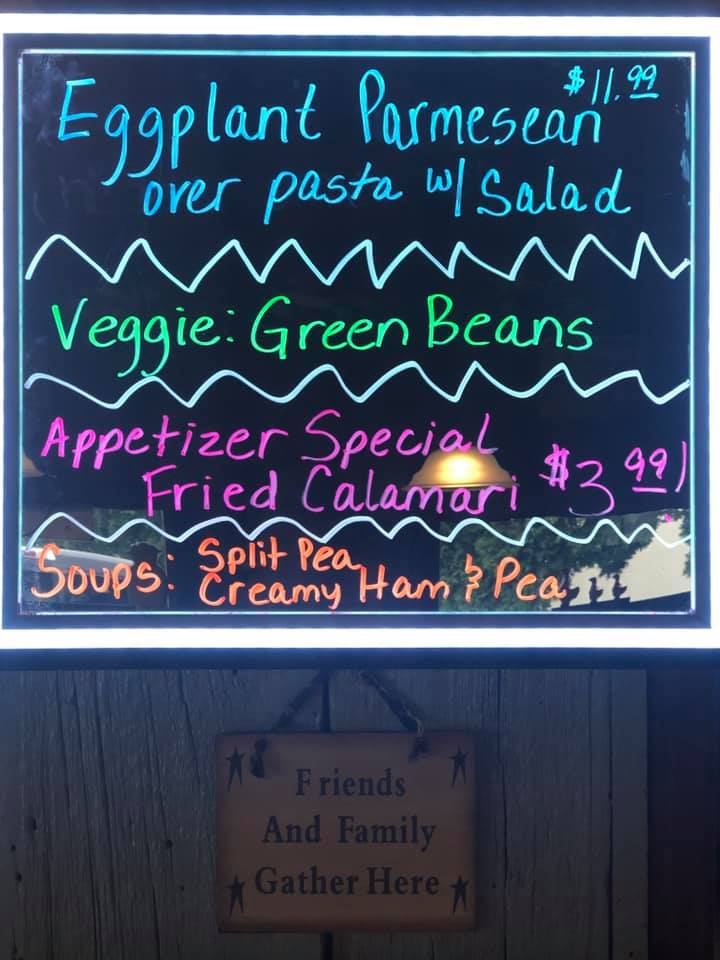 Eggplant Parmesean $11.99
over pasta w/ Salad
Veggie: Green Beans
Appetizer Special
Fried Calamari $3.99
Soups: Split Pea
Creamy Ham & Pea
Friends
And Family
Gather Here